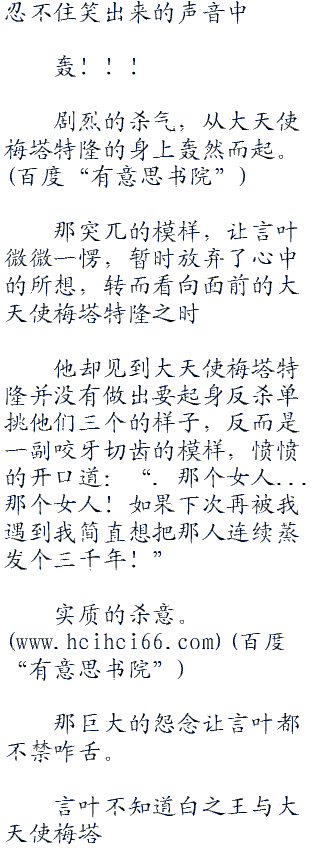 忍不住笑出来的声音中
轰！！！
剧烈的杀气，从大天使
梅塔特隆的身上轰然而起。
(百度“有意思书院”)
那突兀的模样，让言叶
微微一愣，暂时放弃了心中
的所想，转而看向面前的大
天使梅塔特隆之时
他却见到大天使梅塔特
隆并没有做出要起身反杀单
挑他们三个的样子，反而是
一副咬牙切齿的模样，愤愤
的开口道：“．那个女人...
那个女人！如果下次再被我
遇到我简直想把那人连续蒸
发个三千年！”
实质的杀意。
(www.hcihci66.com)(百度
“有意思书院”)
那巨大的怨念让言叶都
不禁咋舌。
言叶不知道白之王与大
天使梅塔